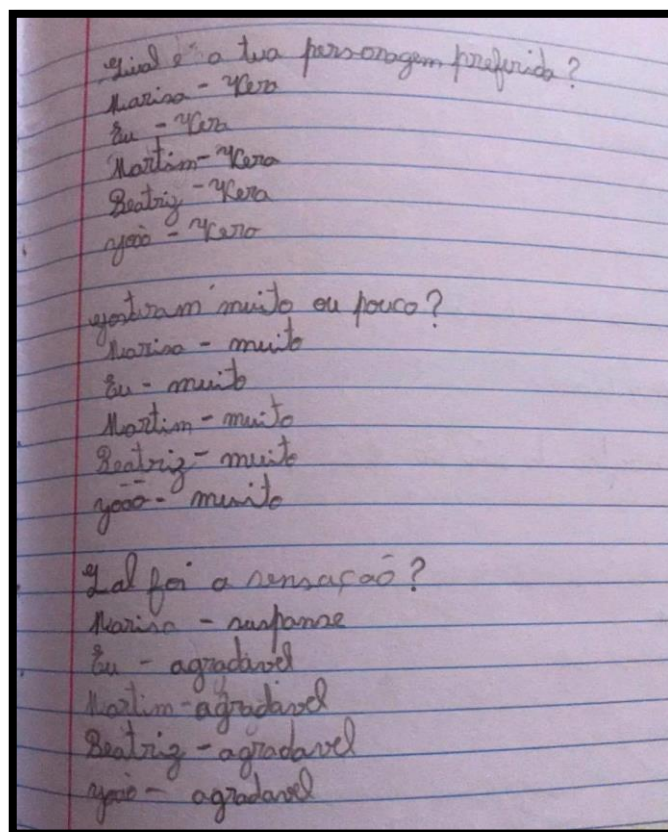 Qual é a tua personagem preferida?
Marisa - Kera
Eu - Kera
Martim - Kera
Beatriz - Kera
João - Kera
gostaram muito ou pouco?
Marisa - muito
Eu - muito
Martim - muito
Beatriz - muito
João - muito
Qal foi a sensação?
Marisa - suspanse
Eu - agradável
Martim - agradável
Beatriz - agradavel
João - agradavel